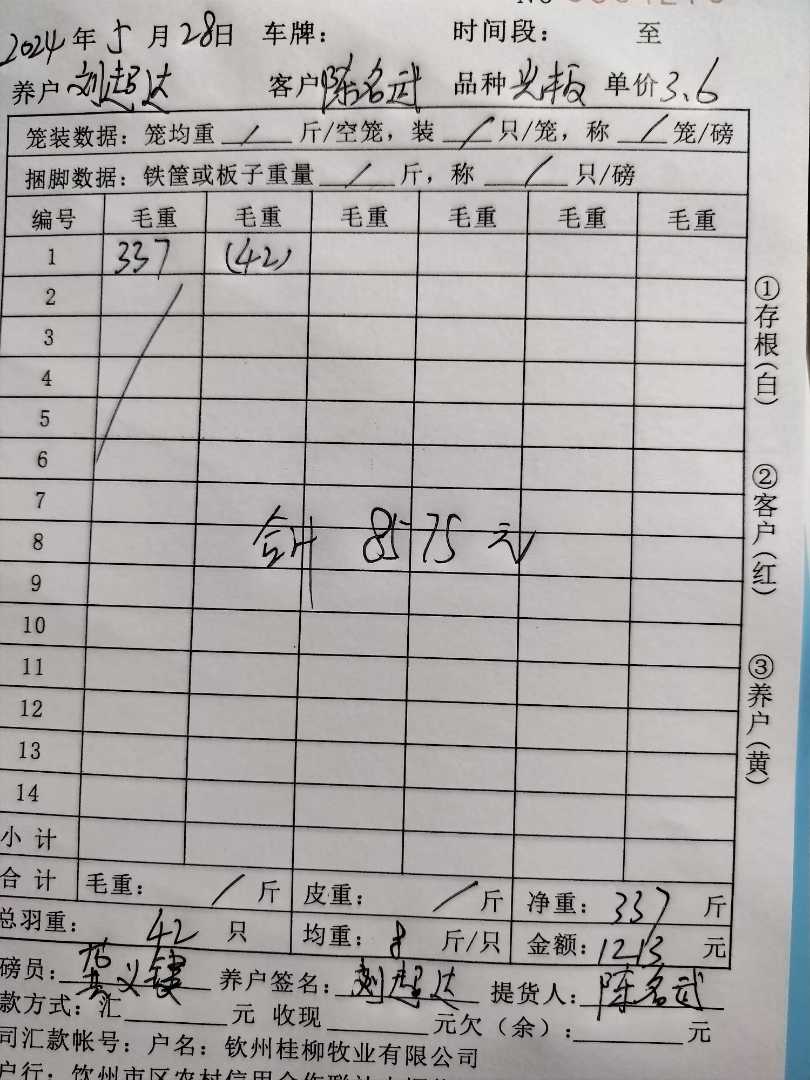 2024年5月28日 车牌: 时间段: 至
养户 刘超达 客户 陈名武 品种 光板 单价 3.6
笼装数据: 笼均重 / 斤/空笼, 装 / 只/笼, 称 / 笼/磅
捆脚数据: 铁筐或板子重量 / 斤, 称 / 只/磅
编号 毛重 毛重 毛重 毛重 毛重 毛重
1 337 (42)
2
3
4
5
6
7
8
合计 8575元
9
10
11
12
13
14
小计
合计 毛重: / 斤 皮重: / 斤 净重: 337 斤
总羽重: 42 只 均重: 8 斤/只 金额: 1213 元
磅员: 义 养户签名: 刘超达 提货人: 陈名武
款方式: 汇 元 收现 元欠(余): 元
司汇款帐号: 户名: 钦州桂柳牧业有限公司
户行: 钦州市区农村信用合作联社
①存根(白)
②客户(红)
③养户(黄)